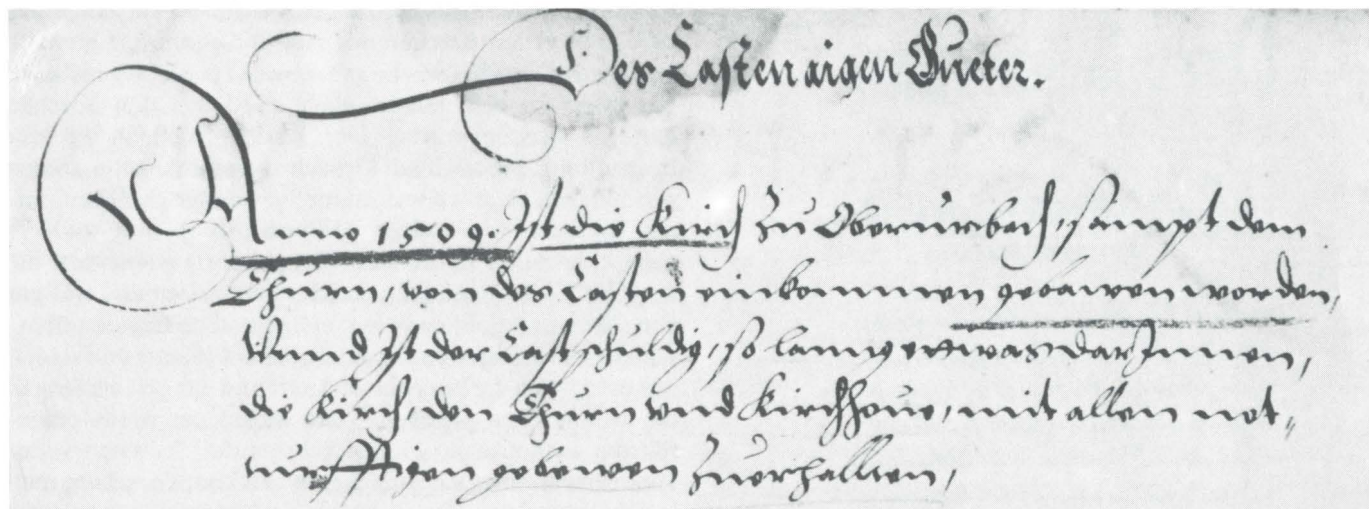 Des Casten aigen Güeter.
Anno 1509. Ist die Kirch zu Oberurbach, sampt dem
Thurn, von des Casten einkommen gebawen worden,
Vnnd Ist der Cast schuldig, so lang etwas darInnen,
die Kirch, den Thurn vnd Kirchhoue, mit allen not,
turfftigen gebewen Zuerhalten,